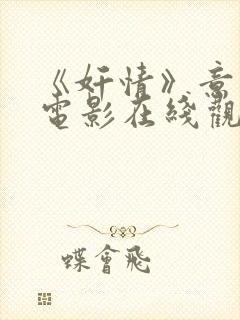 《奸情》意
电影在綫觀
蝶會飛